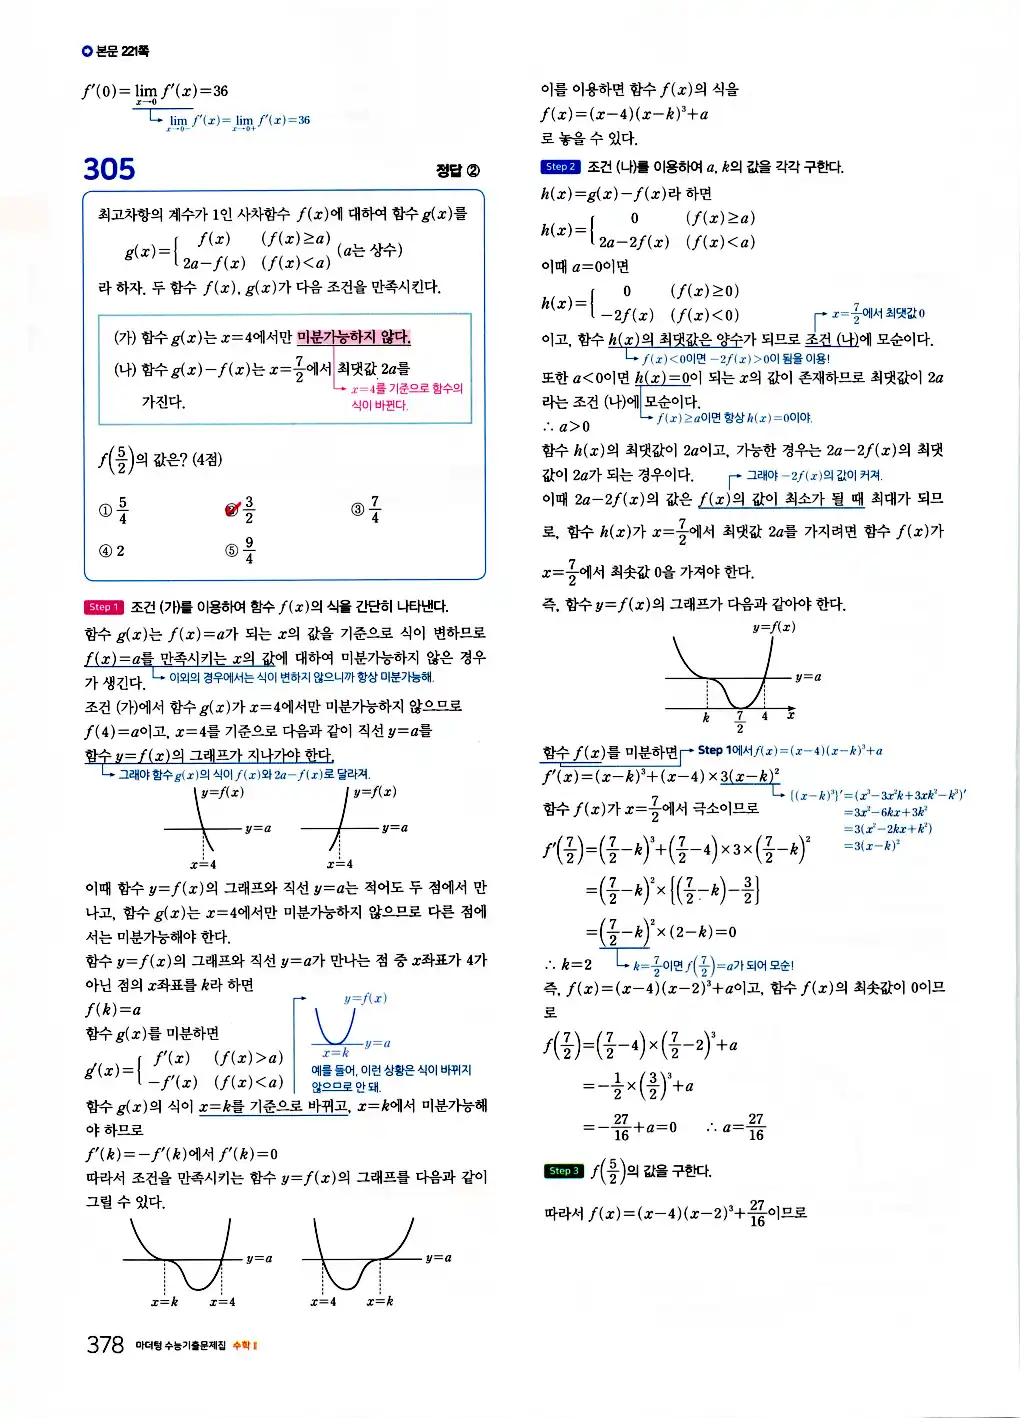 본문 221쪽
f'(0)=lim f'(x)=36
x→0
lim f'(x)= lim f'(x)=36
x→0− x→0+
305 정답 ②
최고차항의 계수가 1인 사차함수 f(x)에 대하여 함수 g(x)를
g(x)={ f(x) (f(x)≥a)
2a−f(x) (f(x)<a) (a는 상수)
라 하자. 두 함수 f(x), g(x)가 다음 조건을 만족시킨다.
(가) 함수 g(x)는 x=4에서만 미분가능하지 않다.
(나) 함수 g(x)−f(x)는 x=7/2에서 최댓값 2a를
x=4를 기준으로 함수의
가진다.
식이 바뀐다.
f(5/2)의 값은? (4점)
① 5/4 ② 3/2 ③ 7/4
④ 2 ⑤ 9/4
Step 1 조건 (가)를 이용하여 함수 f(x)의 식을 간단히 나타낸다.
함수 g(x)는 f(x)=a가 되는 x의 값을 기준으로 식이 변하므로
f(x)=a를 만족시키는 x의 값에 대하여 미분가능하지 않은 경우
가 생긴다. 이외의 경우에서는 식이 변하지 않으니까 항상 미분가능해.
조건 (가)에서 함수 g(x)가 x=4에서만 미분가능하지 않으므로
f(4)=a이고, x=4를 기준으로 다음과 같이 직선 y=a를
함수 y=f(x)의 그래프가 지나가야 한다.
그래야 함수 g(x)의 식이 f(x)와 2a−f(x)로 달라져.
y=f(x) y=f(x)
y=a y=a
x=4 x=4
이때 함수 y=f(x)의 그래프와 직선 y=a는 적어도 두 점에서 만
나고, 함수 g(x)는 x=4에서만 미분가능하지 않으므로 다른 점에
서는 미분가능해야 한다.
함수 y=f(x)의 그래프와 직선 y=a가 만나는 점 중 x좌표가 4가
아닌 점의 x좌표를 k라 하면
f(k)=a
y=f(x)
함수 g(x)를 미분하면
y=a
x=k
g'(x)={ f'(x) (f(x)>a)
−f'(x) (f(x)<a)
예를 들어, 이런 상황은 식이 바뀌지
않으므로 안 돼.
함수 g(x)의 식이 x=k를 기준으로 바뀌고, x=k에서 미분가능해
야 하므로
f'(k)=−f'(k)에서 f'(k)=0
따라서 조건을 만족시키는 함수 y=f(x)의 그래프를 다음과 같이
그릴 수 있다.
y=a y=a
x=k x=4 x=4 x=k
378 마더텅 수능기출문제집 수학 Ⅱ
이를 이용하면 함수 f(x)의 식을
f(x)=(x−4)(x−k)³+a
로 놓을 수 있다.
Step 2 조건 (나)를 이용하여 a, k의 값을 각각 구한다.
h(x)=g(x)−f(x)라 하면
h(x)={ 0 (f(x)≥a)
2a−2f(x) (f(x)<a)
이때 a=0이면
h(x)={ 0 (f(x)≥0)
−2f(x) (f(x)<0)
x=7/2에서 최댓값 0
이고, 함수 h(x)의 최댓값은 양수가 되므로 조건 (나)에 모순이다.
f(x)<0이면 −2f(x)>0이 됨을 이용!
또한 a<0이면 h(x)=0이 되는 x의 값이 존재하므로 최댓값이 2a
라는 조건 (나)에 모순이다.
f(x)≥a이면 항상 h(x)=0이야.
∴ a>0
함수 h(x)의 최댓값이 2a이고, 가능한 경우는 2a−2f(x)의 최댓
값이 2a가 되는 경우이다. 그래야 −2f(x)의 값이 커져.
이때 2a−2f(x)의 값은 f(x)의 값이 최소가 될 때 최대가 되므
로, 함수 h(x)가 x=7/2에서 최댓값 2a를 가지려면 함수 f(x)가
x=7/2에서 최솟값 0을 가져야 한다.
즉, 함수 y=f(x)의 그래프가 다음과 같아야 한다.
y=f(x)
y=a
k 7/2 4 x
함수 f(x)를 미분하면 Step 1에서 f(x)=(x−4)(x−k)³+a
f'(x)=(x−k)³+(x−4)×3(x−k)²
{(x−k)³}'=(x³−3x²k+3xk²−k³)'
=3x²−6kx+3k²
=3(x²−2kx+k²)
=3(x−k)²
함수 f(x)가 x=7/2에서 극소이므로
f'(7/2)=(7/2−k)³+(7/2−4)×3×(7/2−k)²
=(7/2−k)²×{(7/2−k)−3/2}
=(7/2−k)²×(2−k)=0
∴ k=2 k=7/2이면 f(7/2)=a가 되어 모순!
즉, f(x)=(x−4)(x−2)³+a이고, 함수 f(x)의 최솟값이 0이므
로
f(7/2)=(7/2−4)×(7/2−2)³+a
=−1/2×(3/2)³+a
=−27/16+a=0 ∴ a=27/16
Step 3 f(5/2)의 값을 구한다.
따라서 f(x)=(x−4)(x−2)³+27/16이므로